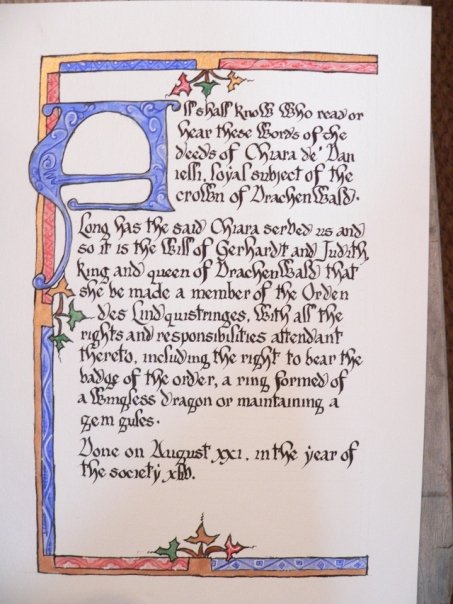 All shall know who read or
hear these words of the
deeds of Chiara de' Dan
ielli, loyal subject of the
crown of Drachenwald.
Long has the said Chiara served us and
so it is the will of Gerhardt and Judith,
king and queen of Drachenwald that
she be made a member of the Orden
des Lindquistringes, with all the
rights and responsibilities attendant
thereto, including the right to bear the
badge of the order, a ring formed of
a wingless dragon or maintaining a
gem gules.
Done on August xxi, in the year of
the society xliv.